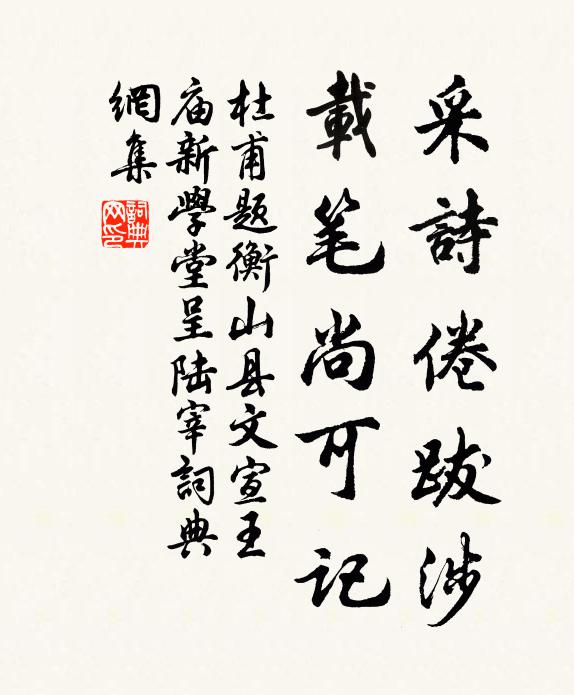 采詩倦跋涉
載笔尚可記
杜甫题衡山县文宣王
庙新學堂呈陆宰詞典
網集
詞典
网印